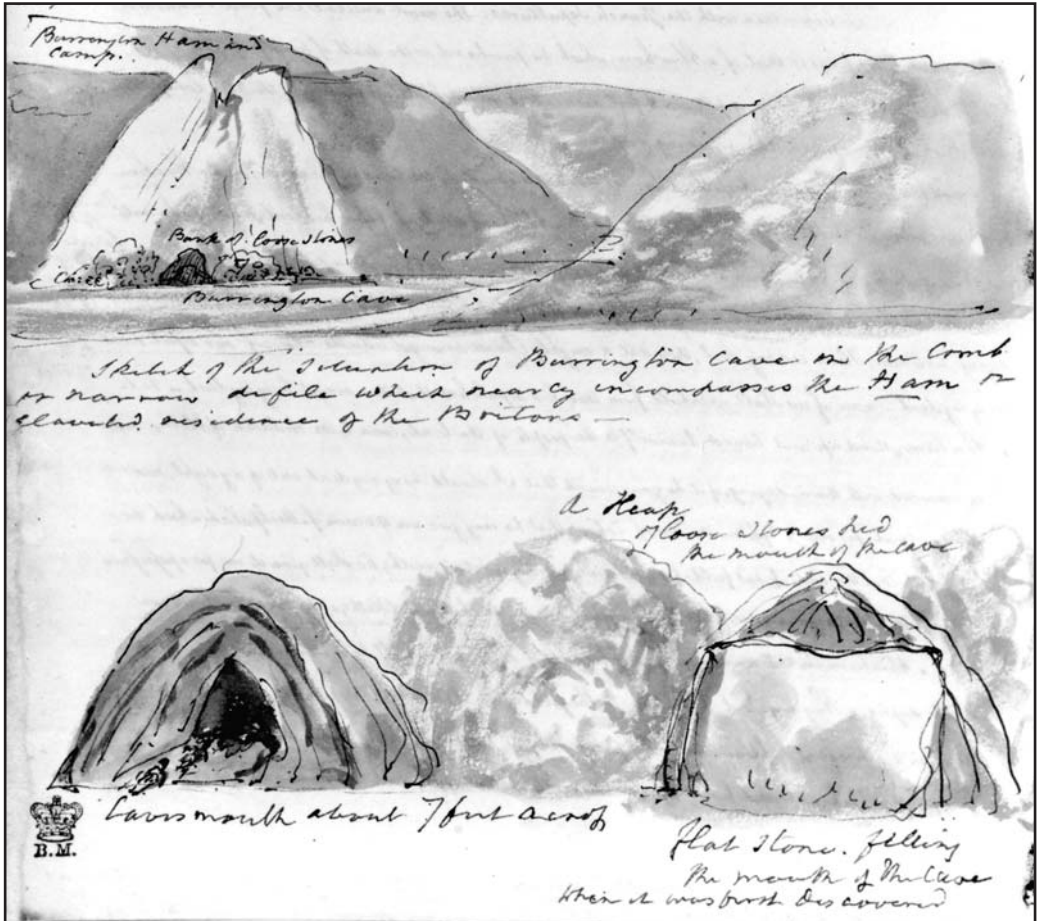 Burrington Ham and
Camp.
Bank of loose stones
Burrington Cave
Sketch of the Situation of Burrington Cave in the Comb
or narrow defile which nearly incompasses the Ham or
elavated residence of the Britons —
A Heap
of loose stones hid
the mouth of the cave
Caves mouth about 7 feet across
Flat stone. filling
the mouth of the Cave
when it was first discovered
B.M.